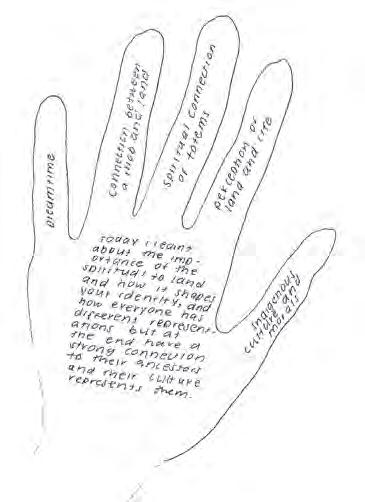 Dreamtime
connection between
a mob and land
spiritual connection
or totems
perception of
land and life
indigenous
culture and
morals
today i learnt
about the imp-
ortance of the
spiritual to land
and how it shapes
your identity, and
how everyone has
different represent-
ations but at
the end have a
strong connection
to their ancestors
and their culture
represents them.